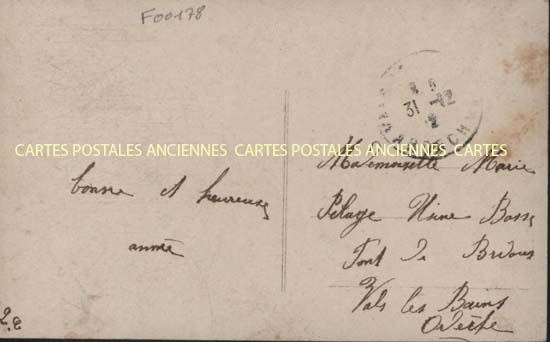 F00178
31 -12
CARTES POSTALES ANCIENNES CARTES POSTALES ANCIENNES CARTES
Mademoiselle Marie
Pelage Usine Basse
Pont de
Vals les Bains
Ardèche
bonne et heureuse
année
2 e